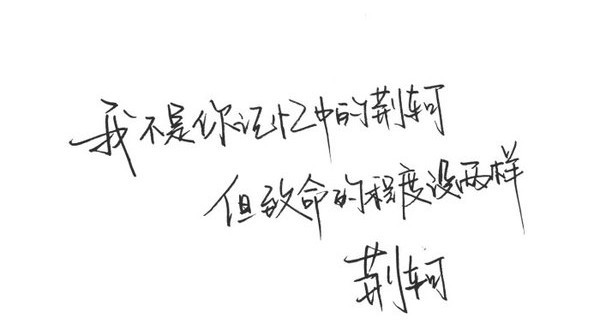 我不是你记忆中的荆轲
但致命的程度没两样
荆轲